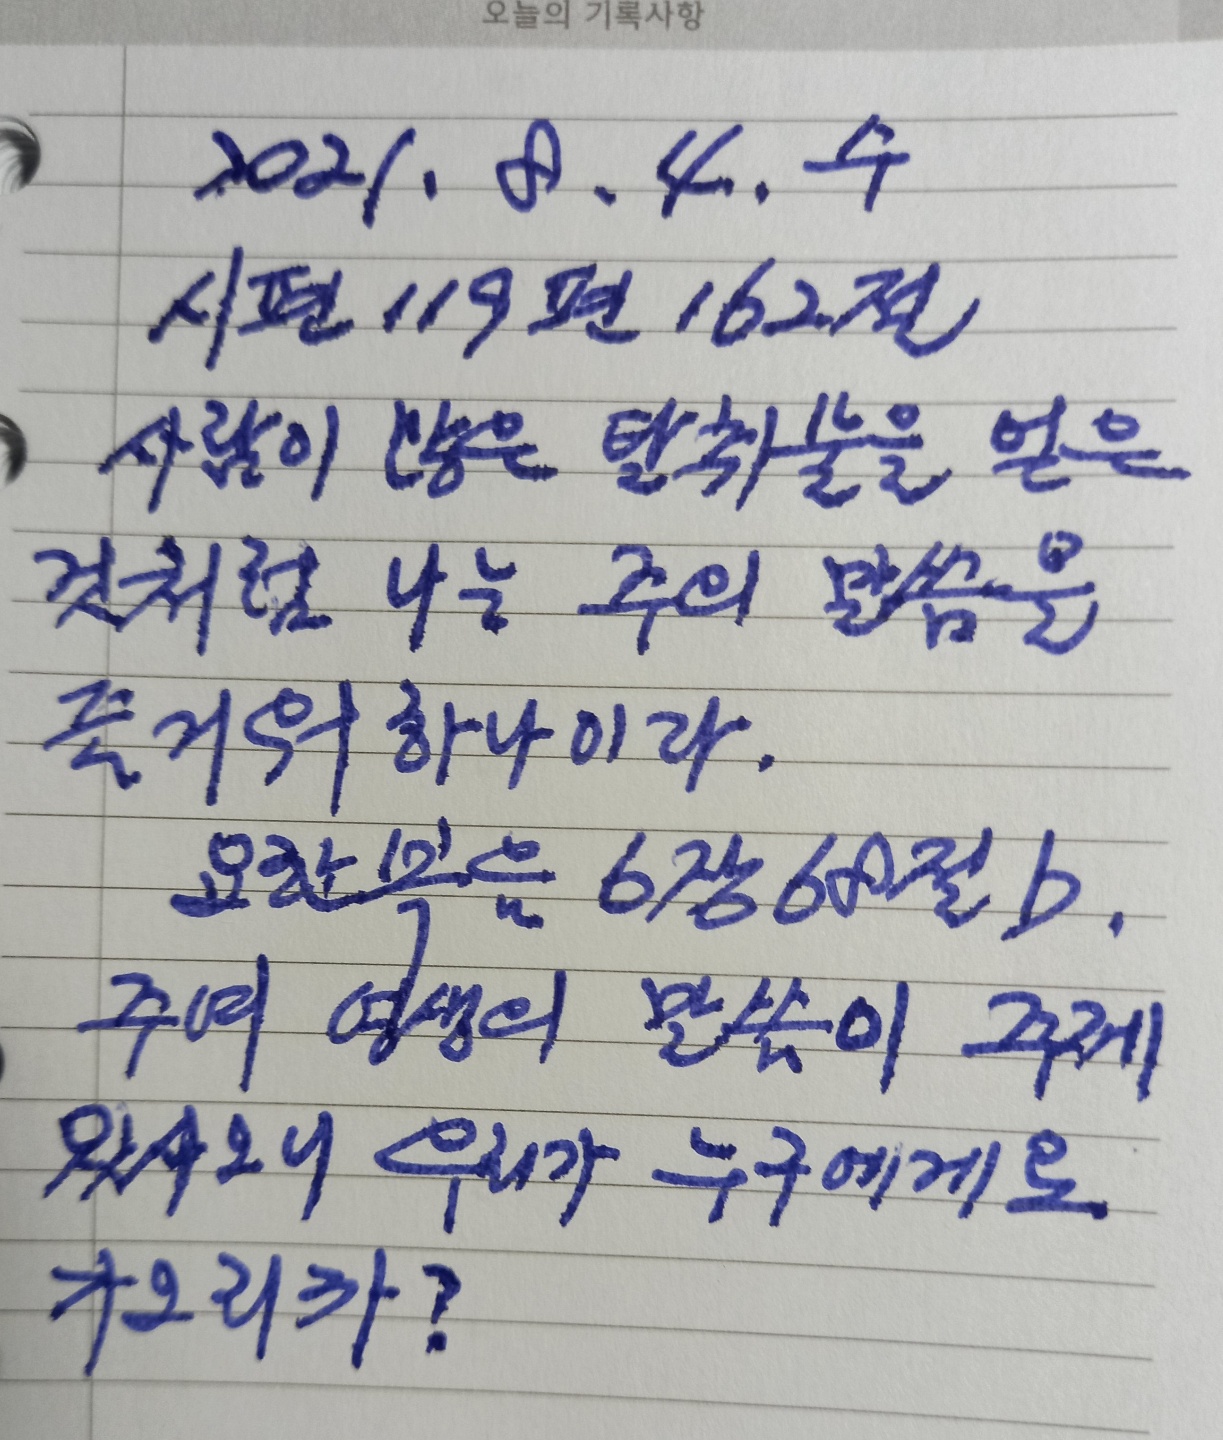 오늘의 기록사항
2021. 8. 4. 수
시편 119편 162절
사람이 많은 탈취물을 얻은
것처럼 나는 주의 말씀을
즐거워하나이다.
요한복음 6장 68절 b.
주여 영생의 말씀이 주께
있사오니 우리가 누구에게로
가오리까?